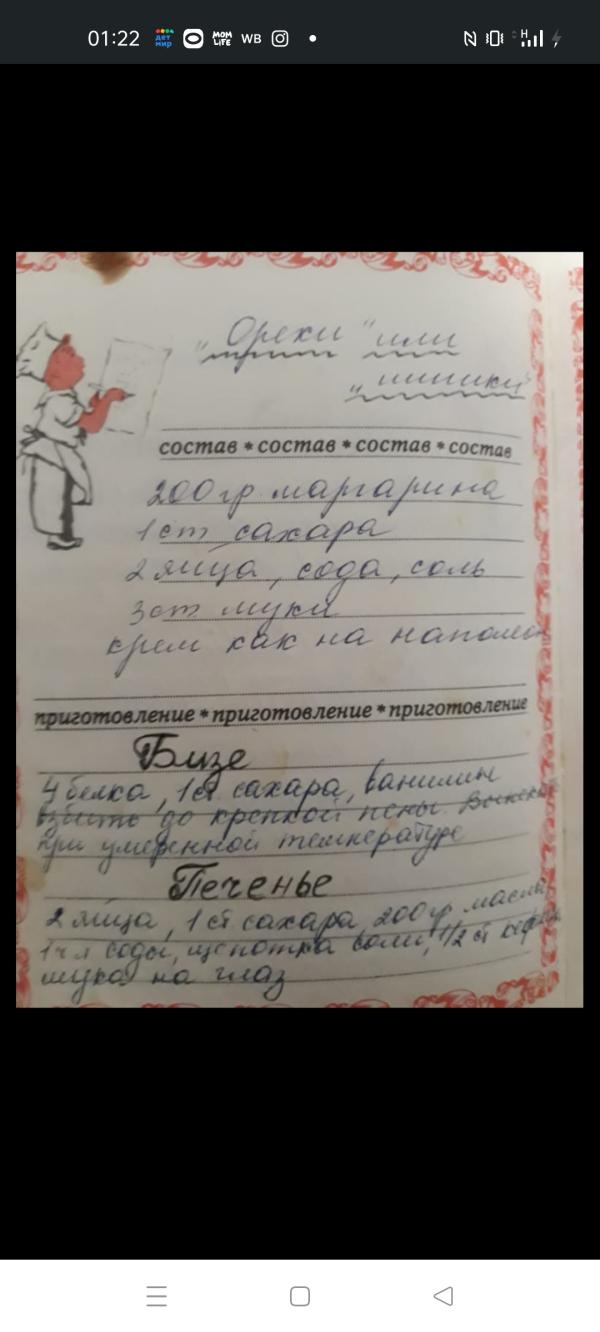 01:22 дет мир MOM LIFE WB H
„Орехи" или
„шишки"
состав * состав * состав * состав
200 гр маргарина
1 ст сахара
2 яйца, сода, соль
3 ст муки
крем как на
приготовление * приготовление * приготовление
Бизе
4 белка, 1 ст сахара, ванилин
взбить до крепкой пены
при умеренной температуре
Печенье
2 яйца, 1 ст сахара, 200 гр масла,
1 ч л соды, щепотка соли, 1/2 ст
мука на глаз